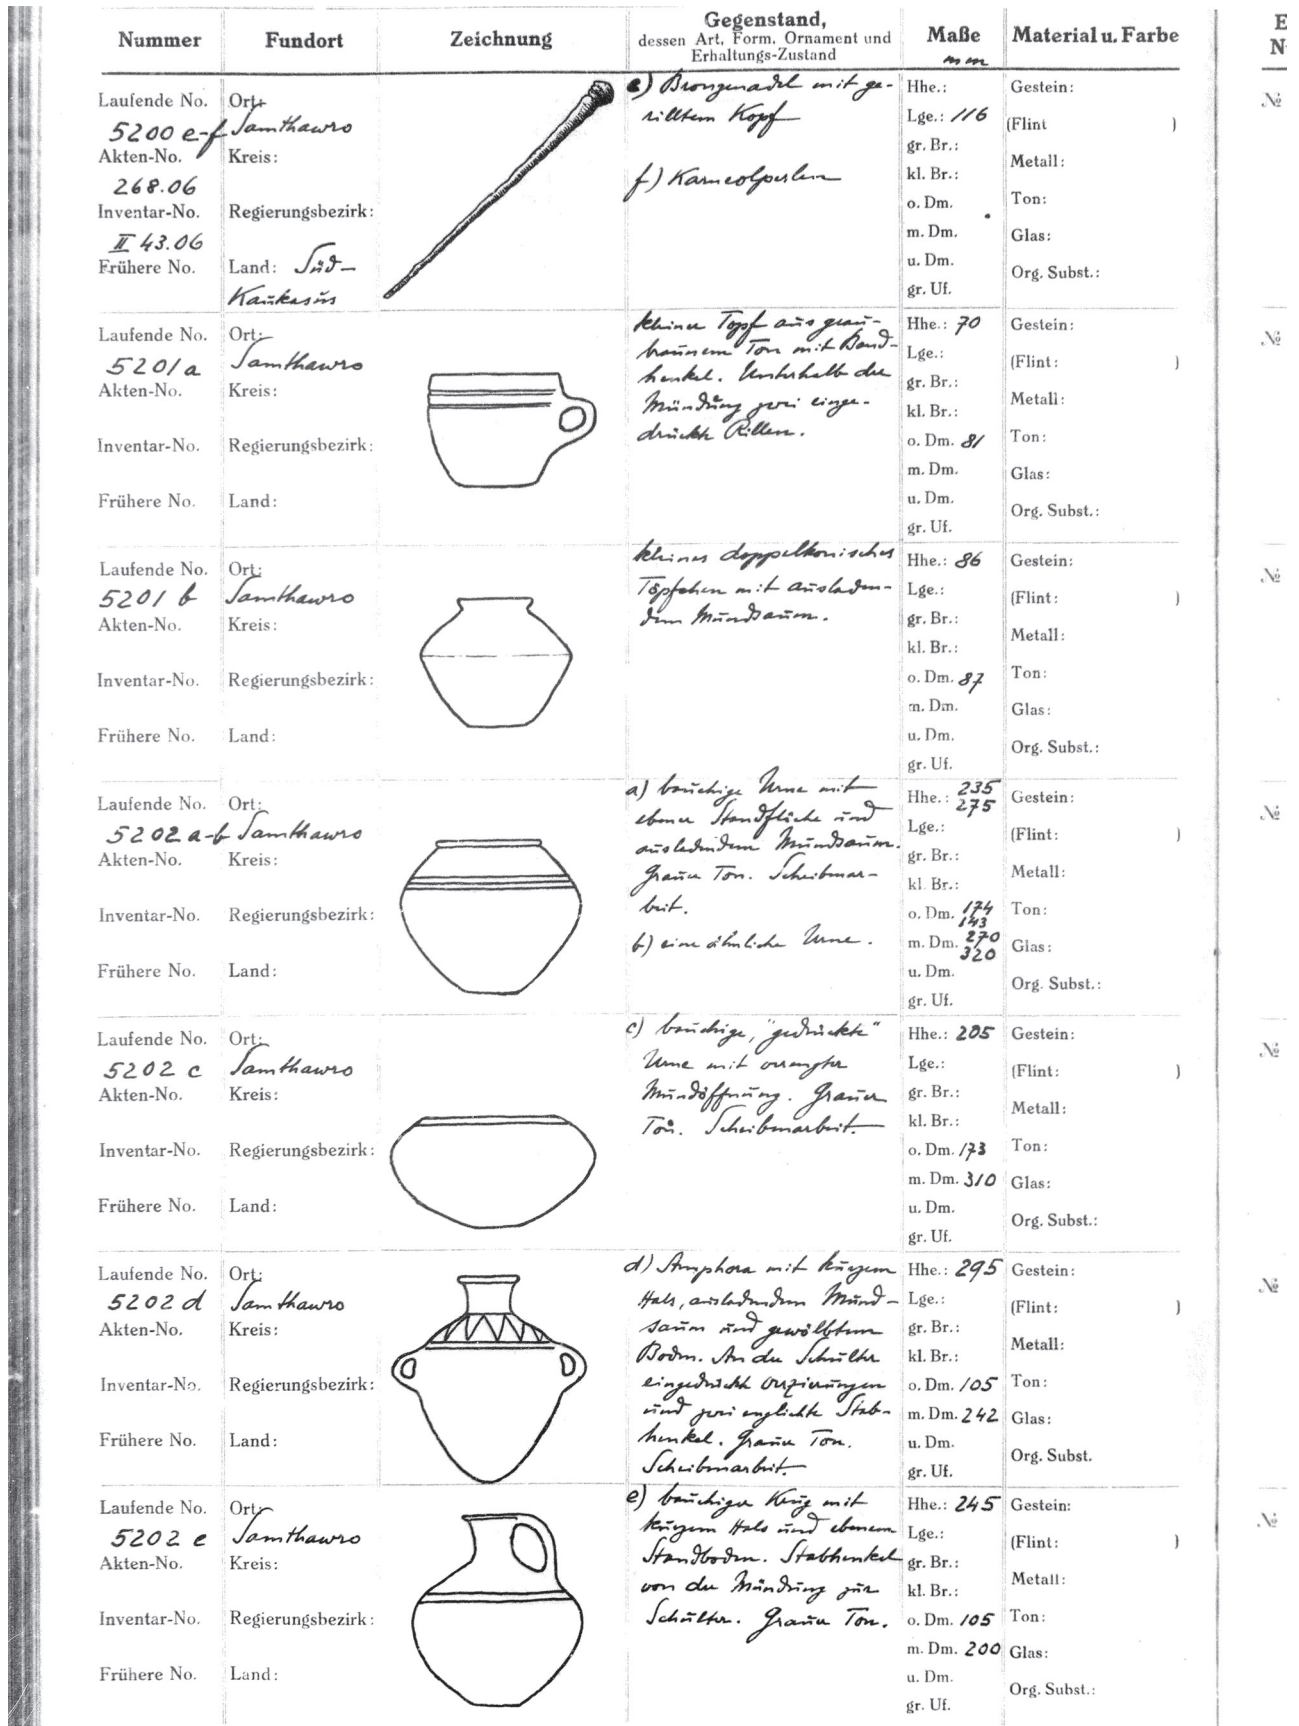 Nummer
Fundort
Zeichnung
Gegenstand,
dessen Art, Form, Ornament und
Erhaltungs-Zustand
Maße
mm
Material u. Farbe
E
N
Laufende No.
5200 e-f
Akten-No.
268.06
Inventar-No.
II 43.06
Frühere No.
Ort:
Samthawro
Kreis:
Regierungsbezirk:
Land: Süd-
Kaukasus
e) Bronzenadel mit ge-
rilltem Kopf
f) Karneolperlen
Hhe.:
Lge.: 116
gr. Br.:
kl. Br.:
o. Dm.
m. Dm.
u. Dm.
gr. Uf.
Gestein:
(Flint )
Metall:
Ton:
Glas:
Org. Subst.:
№
Laufende No.
5201 a
Akten-No.
Inventar-No.
Frühere No.
Ort:
Samthawro
Kreis:
Regierungsbezirk:
Land:
kleiner Topf aus grau-
braunem Ton mit Band-
henkel. Unterhalb der
Mündung zwei einge-
drückte Rillen.
Hhe.: 70
Lge.:
gr. Br.:
kl. Br.:
o. Dm. 81
m. Dm.
u. Dm.
gr. Uf.
Gestein:
(Flint: )
Metall:
Ton:
Glas:
Org. Subst.:
№
Laufende No.
5201 b
Akten-No.
Inventar-No.
Frühere No.
Ort:
Samthawro
Kreis:
Regierungsbezirk:
Land:
kleines doppelkonisches
Töpfchen mit ausladen-
dem Mundsaum.
Hhe.: 86
Lge.:
gr. Br.:
kl. Br.:
o. Dm. 87
m. Dm.
u. Dm.
gr. Uf.
Gestein:
(Flint: )
Metall:
Ton:
Glas:
Org. Subst.:
№
Laufende No.
5202 a-b
Akten-No.
Inventar-No.
Frühere No.
Ort:
Samthawro
Kreis:
Regierungsbezirk:
Land:
a) bauchige Urne mit
ebener Standfläche und
ausladendem Mundsaum.
Grauer Ton. Scheibenar-
beit.
b) eine ähnliche Urne.
Hhe.: 235
275
Lge.:
gr. Br.:
kl. Br.:
o. Dm. 174
143
m. Dm. 270
320
u. Dm.
gr. Uf.
Gestein:
(Flint: )
Metall:
Ton:
Glas:
Org. Subst.:
№
Laufende No.
5202 c
Akten-No.
Inventar-No.
Frühere No.
Ort:
Samthawro
Kreis:
Regierungsbezirk:
Land:
c) bauchige, "gedrückte"
Urne mit verengter
Mundöffnung. Grauer
Ton. Scheibenarbeit.
Hhe.: 205
Lge.:
gr. Br.:
kl. Br.:
o. Dm. 173
m. Dm. 310
u. Dm.
gr. Uf.
Gestein:
(Flint: )
Metall:
Ton:
Glas:
Org. Subst.:
№
Laufende No.
5202 d
Akten-No.
Inventar-No.
Frühere No.
Ort:
Samthawro
Kreis:
Regierungsbezirk:
Land:
d) Amphora mit kurzem
Hals, ausladendem Mund-
saum und gewölbtem
Boden. An der Schulter
eingedrückte Verzierungen
und zwei englichte Stab-
henkel. Grauer Ton.
Scheibenarbeit.
Hhe.: 295
Lge.:
gr. Br.:
kl. Br.:
o. Dm. 105
m. Dm. 242
u. Dm.
gr. Uf.
Gestein:
(Flint: )
Metall:
Ton:
Glas:
Org. Subst.
№
Laufende No.
5202 e
Akten-No.
Inventar-No.
Frühere No.
Ort:
Samthawro
Kreis:
Regierungsbezirk:
Land:
e) bauchiger Krug mit
kurzem Hals und ebenem
Standboden. Stabhenkel
von der Mündung zur
Schulter. Grauer Ton.
Hhe.: 245
Lge.:
gr. Br.:
kl. Br.:
o. Dm. 105
m. Dm. 200
u. Dm.
gr. Uf.
Gestein:
(Flint: )
Metall:
Ton:
Glas:
Org. Subst.:
№